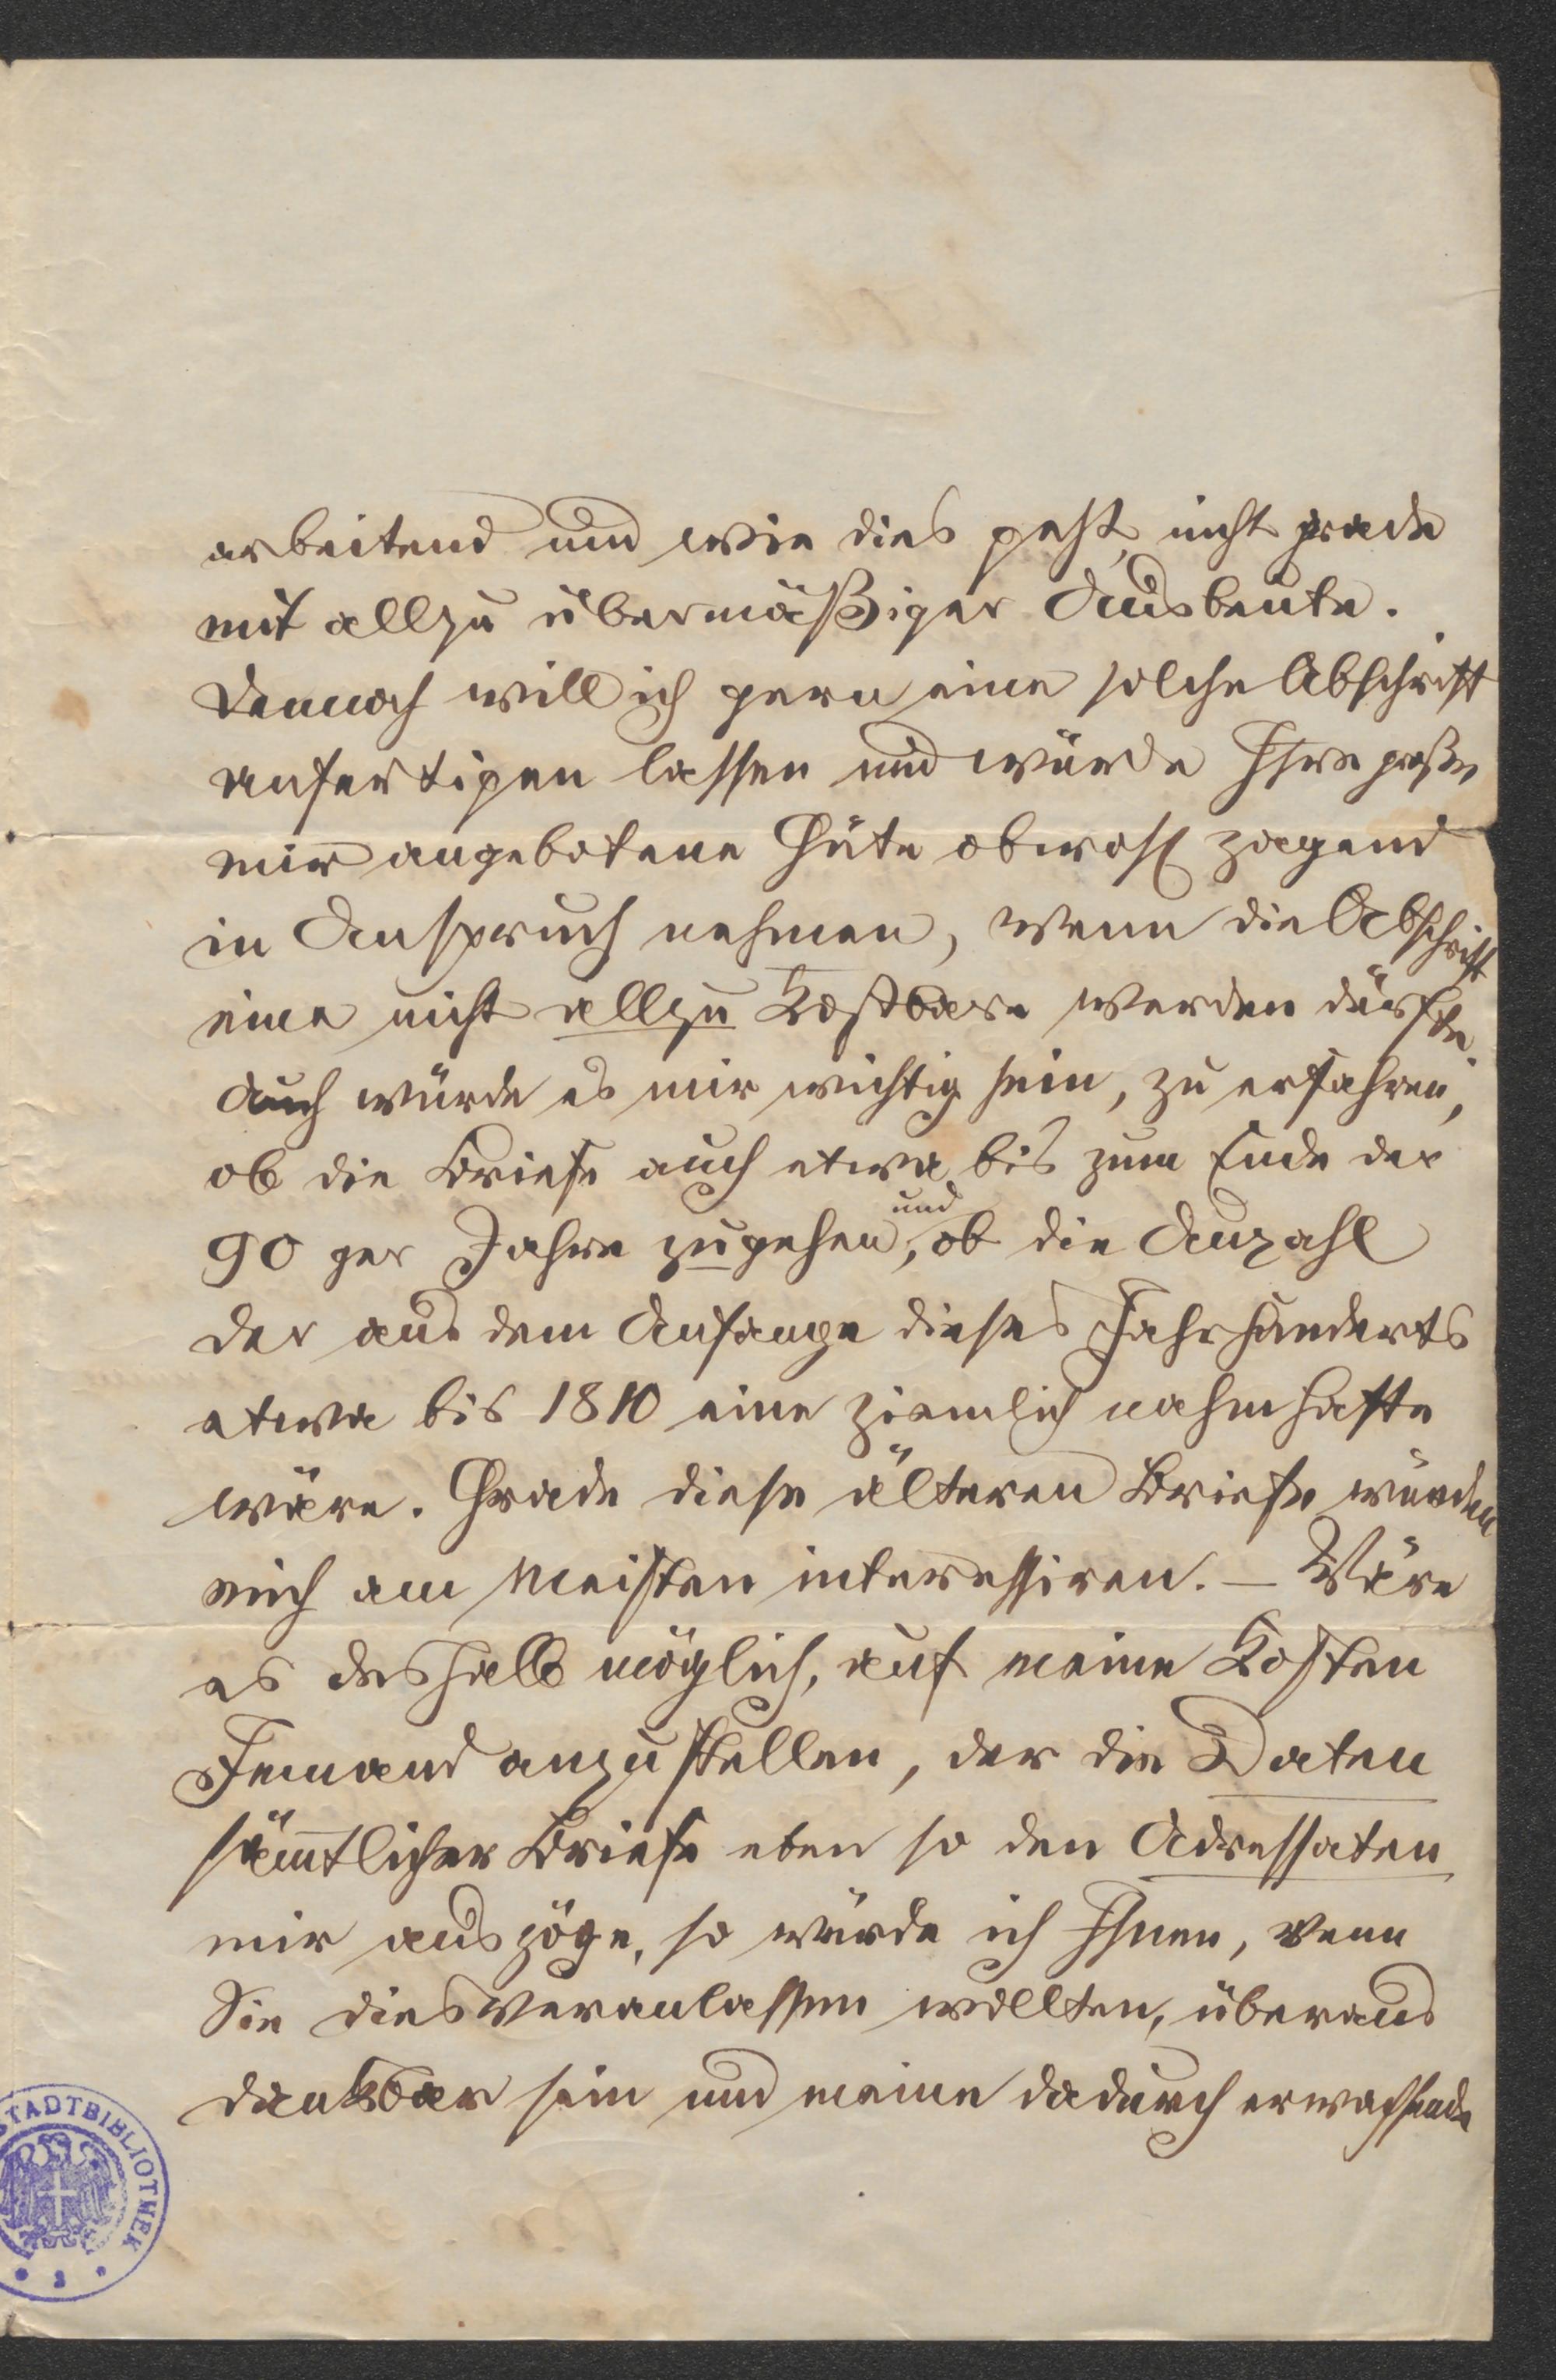 arbeitend und wie dies geht, nicht grade
mit allzu übermäßiger Ausbeute.
Dennoch will ich gern eine solche Abschrift
anfertigen lassen und würde Ihre große
mir angebotene Güte obwohl zagend
in Anspruch nehmen, wenn die Abschrift
eine nicht allzu kostbare werden dürfte.
Auch würde es mir wichtig sein, zu erfahren,
ob die Briefe auch etwa bis zum Ende der
90 ger Jahre zugehen, und ob die Anzahl
der aus dem Anfange dieses Jahrhunderts
etwa bis 1810 eine ziemlich nahmhafte
wäre. Grade diese älteren Briefe würden
mich am Meisten interessiren. – Wäre
es deshalb möglich, auf meine Kosten
Jemand anzustellen, der die Daten
sämtlicher Briefe eben so den Adressaten
mir auszöge, so würde ich Ihnen, wenn
Sie dies veranlassen wollten, überaus
dankbar sein und meine dadurch erwachsende
STADTBIBLIOTHEK